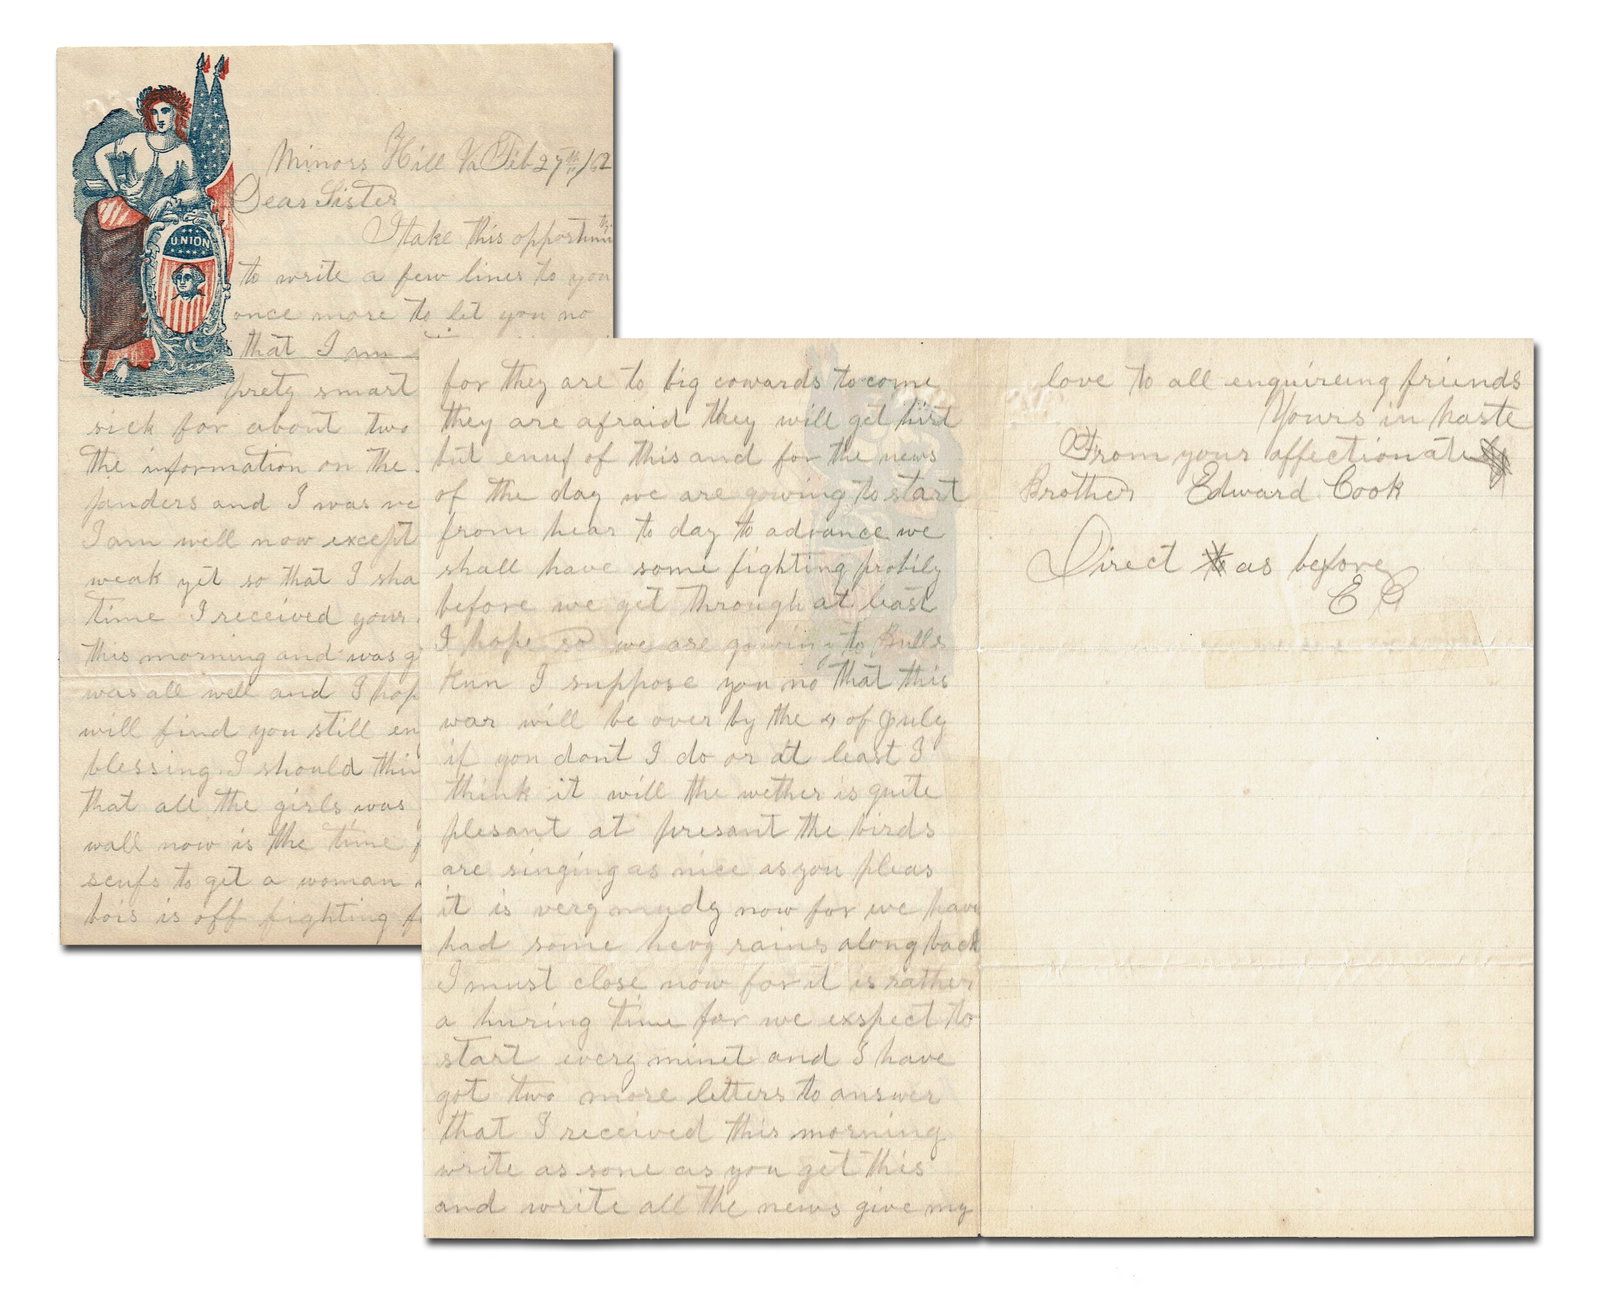 Minors Hill Va Feb 27th /62
Dear Sister
I take this opportunity
to write a few lines to you
once more to let you no
that I am
prety smart
sick for about two
the information on the
janders and I was ve
I am well now except
weak yet so that I sha
time I received your
this morning and was g
was all well and I hop
will find you still en
blessing I should thin
that all the girls was
wall now is the time f
scufs to get a woman
bois is off fighting f
UNION
for they are to big cowards to come
they are afraid they will get hirt
but enuf of this and for the news
of the day we are gowing to start
from hear to day to advance we
shall have some fighting probily
before we get through at least
I hope so we are gowing to Bulls
Run I suppose you no that this
war will be over by the 4 of July
if you dont I do or at least I
think it will the wether is quite
plesant at presant the birds
are singing as nice as you pleas
it is very mudy now for we have
had some hevy rains along back
I must close now for it is rather
a huring time for we exspect to
start every minet and I have
got two more letters to answer
that I received this morning
write as sone as you get this
and write all the news give my
love to all enquireing friends
Yours in haste
From your affectionate
Brother Edward Cook
Direct as before
E C